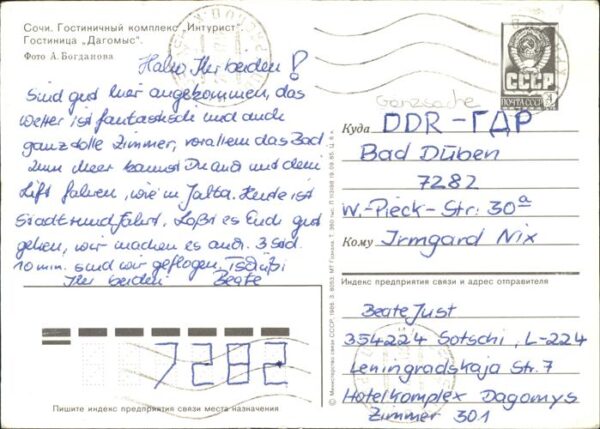 Сочи. Гостиничный комплекс „Интурист".
Гостиница „Дагомыс".
Фото А. Богданова
Hallo, Ihr beiden!
Sind gut hier angekommen, das
Wetter ist fantastisch und auch
ganz tolle Zimmer, vorallem das Bad.
Zum Meer kannst Du und mit dem
Lift fahren, wie in Jalta. Heute ist
Stadtrundfahrt. Laßt es Euch gut
gehen, wir machen es auch. 3 Std.
10 min. sind wir geflogen. Tschüßi
Ihr beiden Beate
СССР
ПОЧТА СССР
Ganzsache
Куда DDR - ГДР
Bad Düben
7282
W.-Pieck-Str. 30a
Кому Irmgard Nix
Индекс предприятия связи и адрес отправителя
Beate Just
354224 Sotschi, L-224
Leningradskaja Str. 7
Hotelkomplex Dagomys
Zimmer 301
7282
Пишите индекс предприятия связи места назначения
© Министерство связи СССР, 1988.